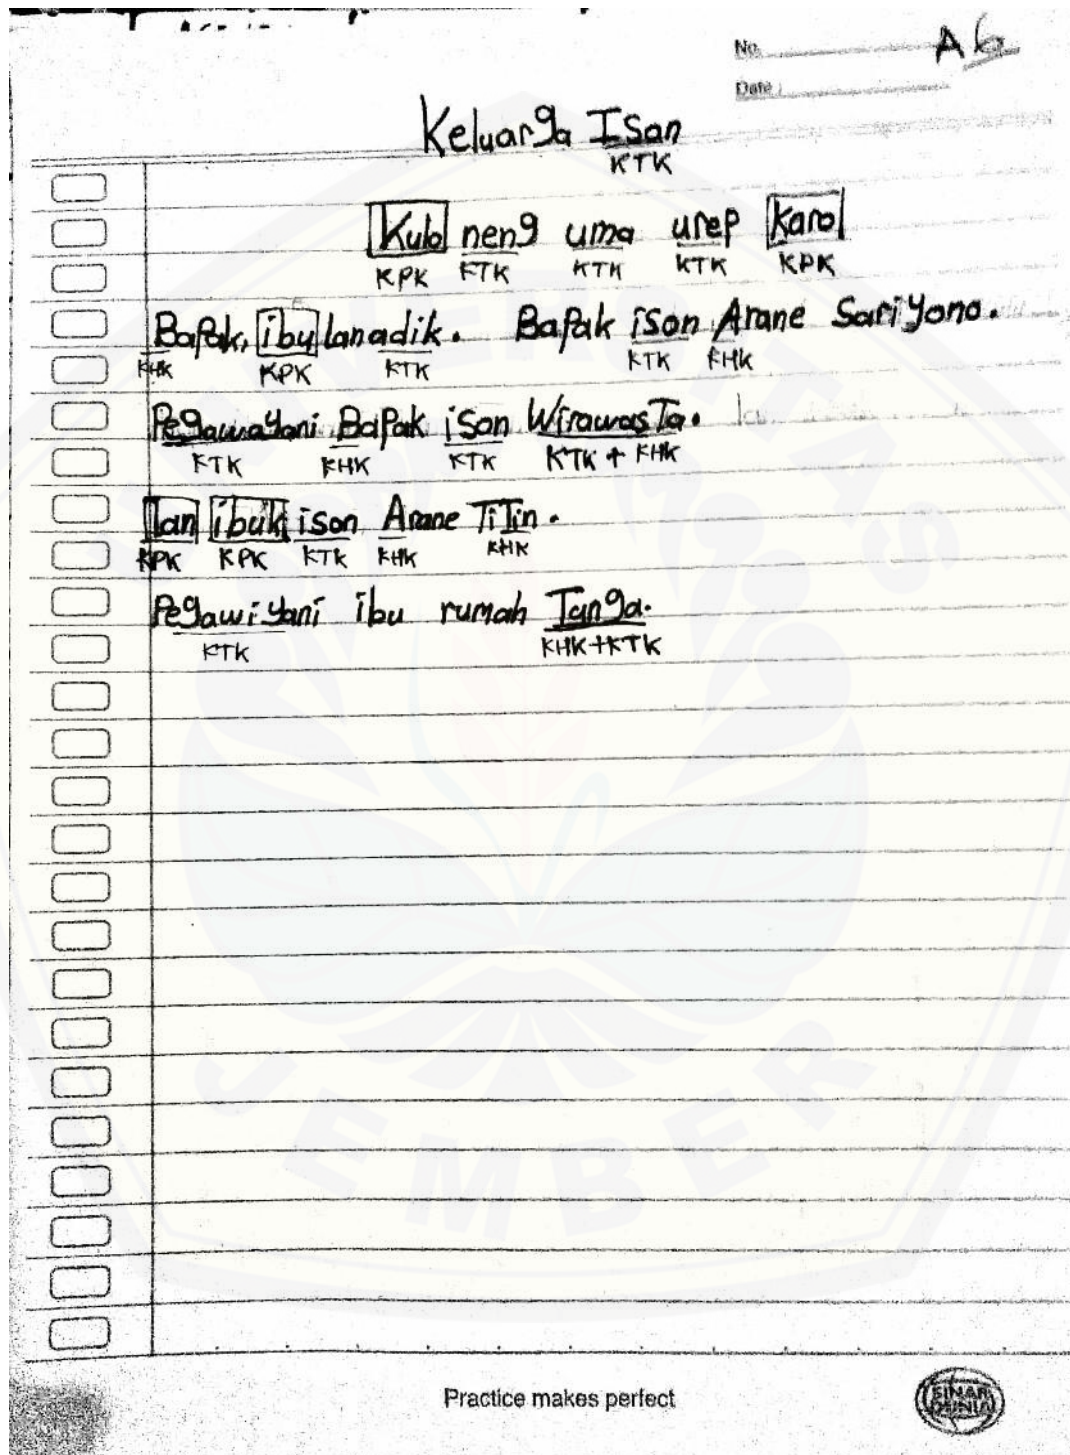 No. A6
Date :
Keluarga Ison
KTK
Kulo neng uma urep karo
KPK KTK KTK KTK KPK
Bapak, ibu lan adik. Bapak ison Arane Sariyono.
KHK KPK KTK KTK KHK
Pegawayani Bapak ison WirawasTa.
KTK KHK KTK KTK + KHK
lan ibuk ison Arane TiTin.
KPK KPK KTK KHK KHK
Pegawiyani ibu rumah Tanga.
KTK KHK+KTK
Practice makes perfect
SINAR DUNIA
JEMBER